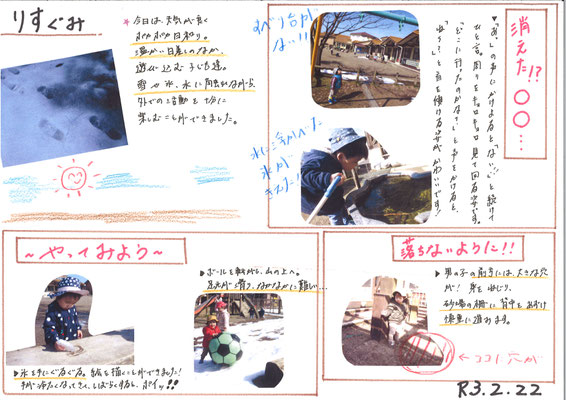 りすぐみ
*今日は、天気が良く
ポカポカ日和り。
温かい日差しのなか、
遊び込む子ども達。
雪や氷、水に触れながら、
外での活動を十分に
楽しむことができました。
すべり台が
ない!!
水に浮かべた
氷が
きえた!!
消えた!? ○○…
▼「あっ」の声にかけよると「ない!!」と続けて
ひと言。周りをキョロキョロ見て回る姿です。
「どこに行ったのかな?」と声をかけると、
と首を傾げる姿がかわいいです!
~やってみよう~
▶氷を手にぐるぐる。絵を描くことができました!
手が冷たくなってきて、しばらくすると、ポイッ!!
▶ボールを転がし、山の上へ。
足元が滑り、なかなかに難しい…
落ちないように!!
▶男の子の前方には、大きな穴
が!身をよじり、
砂場の柵に背中をあずけ
慎重に進みます。
←ココに穴が
R3.2.22